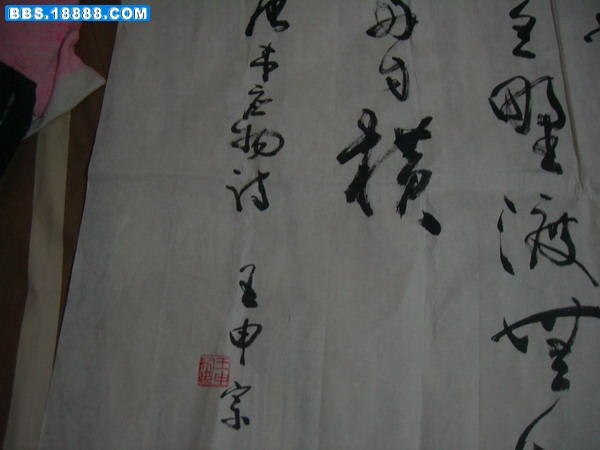 BBS.18888.COM
野渡無人
舟自横
唐韦应物诗 王申宗